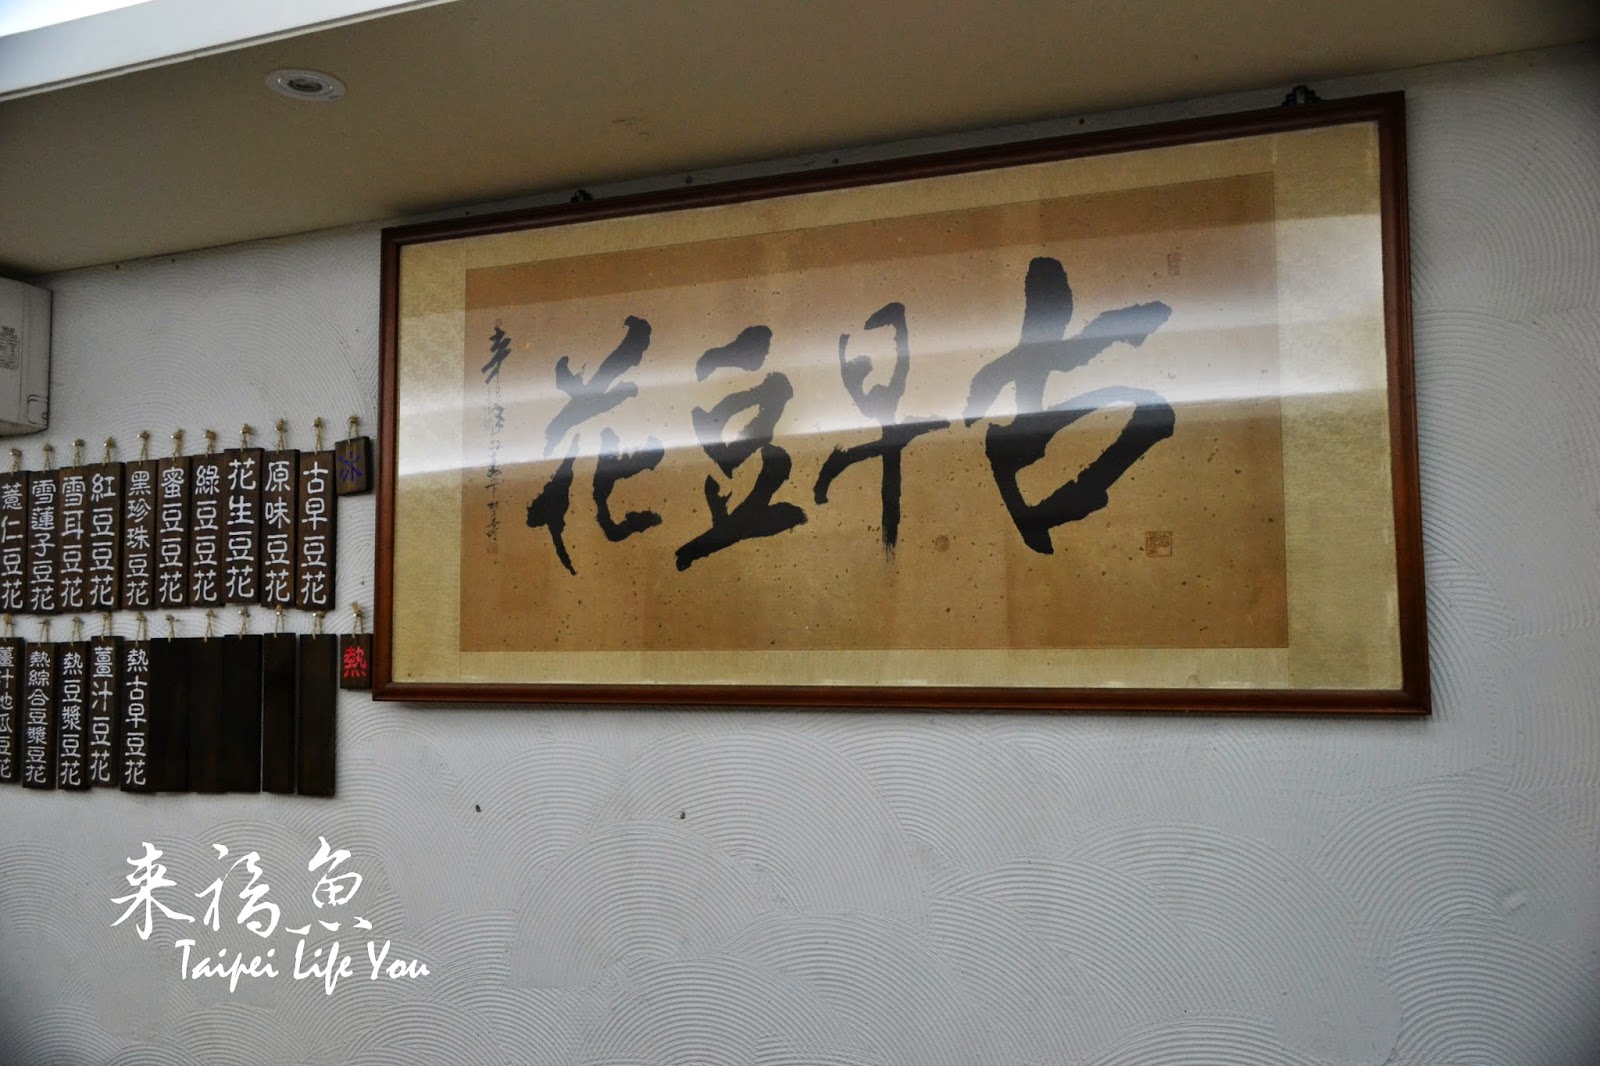 古早豆花
冰
古早豆花
原味豆花
花生豆花
綠豆豆花
蜜豆豆花
黑珍珠豆花
紅豆豆花
雪耳豆花
雪蓮子豆花
薏仁豆花
熱
熱古早豆花
薑汁豆花
熱豆漿豆花
熱綜合豆漿豆花
薑汁地瓜豆花
来福魚
Taipei Life You